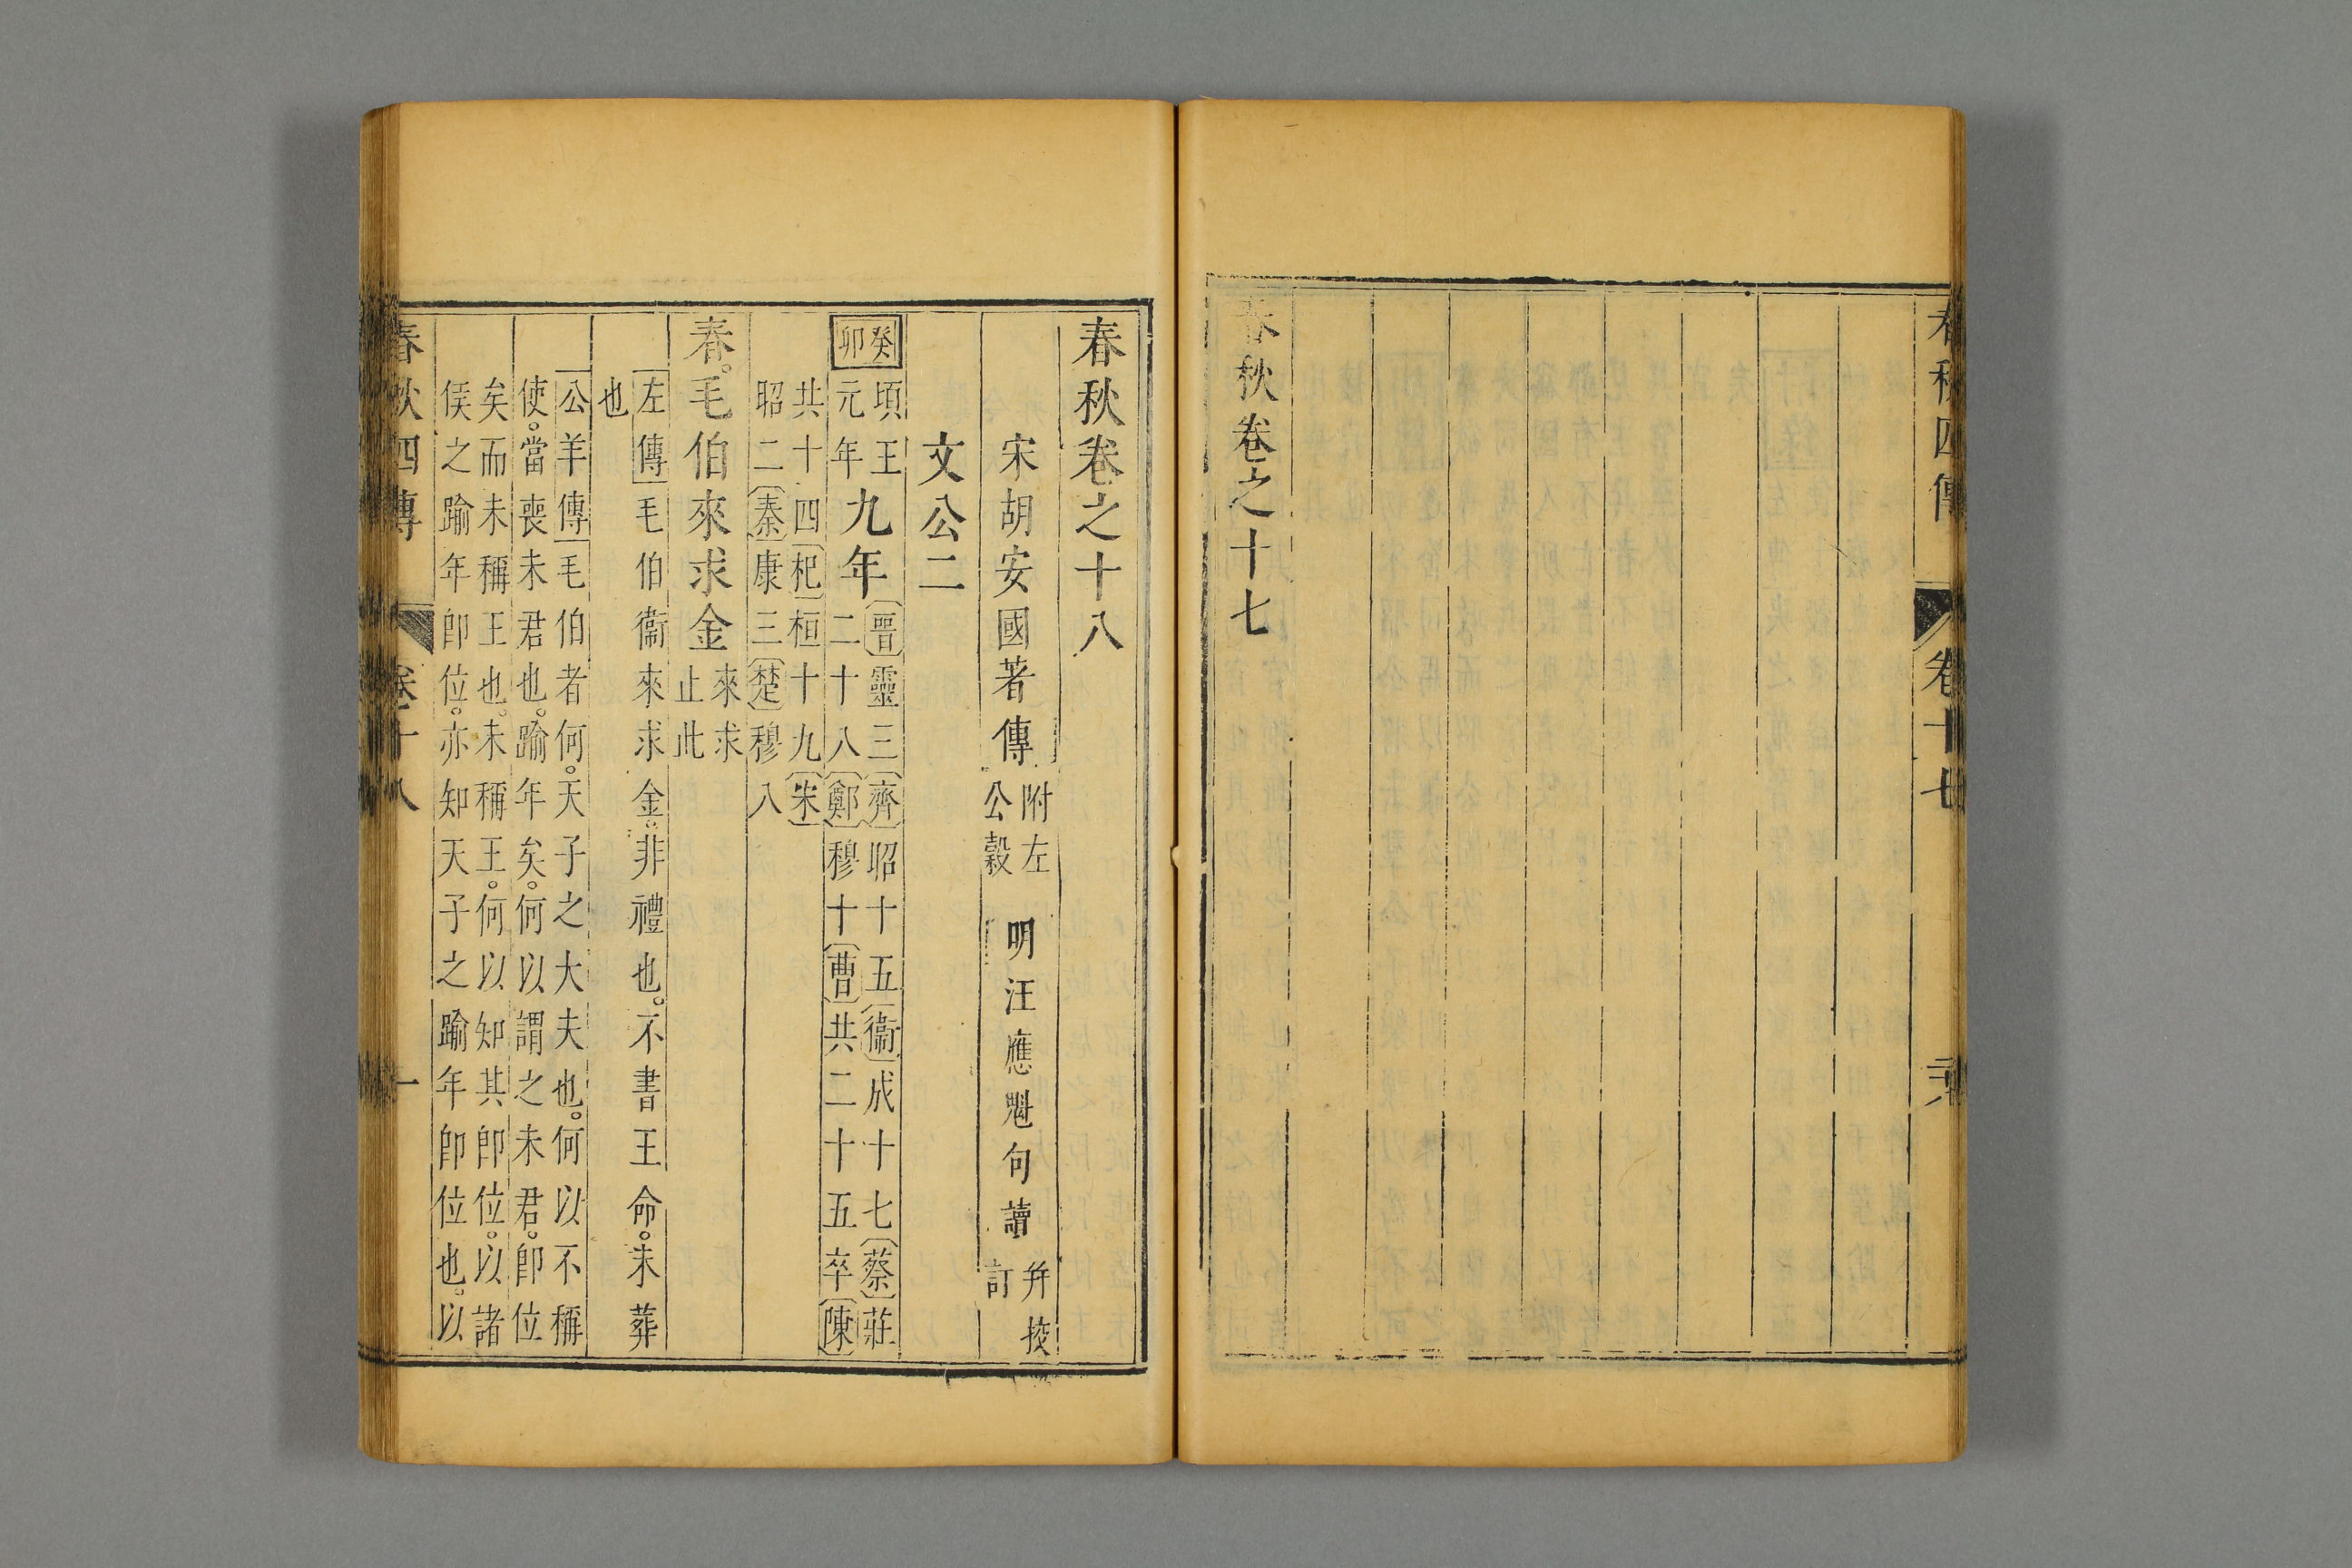 春秋四傳 卷十七
春秋卷之十七
春秋卷之十八
宋胡安國著傳 附左公穀 明汪應魁句讀 并挍訂
文公二
癸卯 頃王元年 九年 晉靈三 齊昭十五 衞成十七 蔡莊
二十八 鄭穆十 曹共二十五卒 陳
共十四 杞桓十九 宋
昭二 秦康三 楚穆八
春。毛伯來求金 來求止此
左傳 毛伯衞來求金。非禮也。不書王命。未葬
也
公羊傳 毛伯者何。天子之大夫也。何以不稱
使。當喪未君也。踰年矣。何以謂之未君。卽位
矣而未稱王也。未稱王。何以知其卽位。以諸
侯之踰年卽位。亦知天子之踰年卽位也。以
春秋四傳 卷十八 一